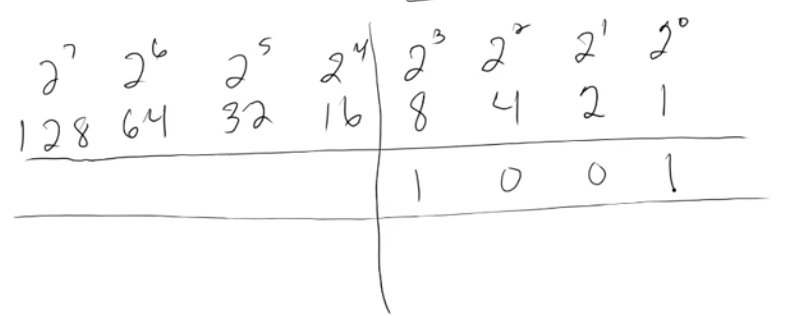 2⁷ 2⁶ 2⁵ 2⁴ 2³ 2² 2¹ 2⁰
128 64 32 16 8 4 2 1
1 0 0 1